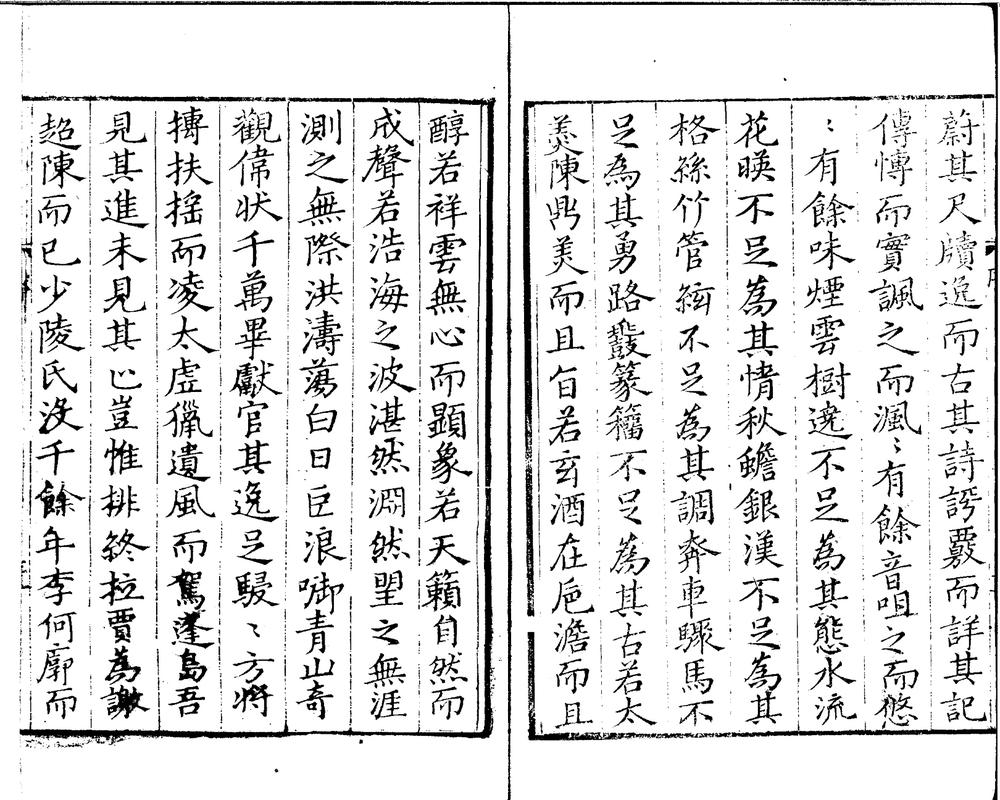 蔚其尺牘逸而古其詩謌覈而詳其記
傳愽而實諷之而渢〻有餘音咀之而悠
〻有餘味煙雲樹遶不足為其態水流
花暎不足為其情秋蟾銀漢不足為其
格絲竹管絃不足為其調奔車驟馬不
足為其勇路鼗篆籀不足為其古若太
羹陳鼎美而且旨若玄酒在巵澹而且
醇若祥雲無心而顯象若天籟自然而
成聲若浩海之波湛然淵然朢之無涯
測之無際洪濤蕩白日巨浪啣青山奇
觀偉狀千萬畢獻官其逸足駸〻方將
摶扶搖而凌太虛獵遺風而駕蓬島吾
見其進未見其止豈惟排終拉賈為
超陳而已少陵氏沒千餘年李何廓而